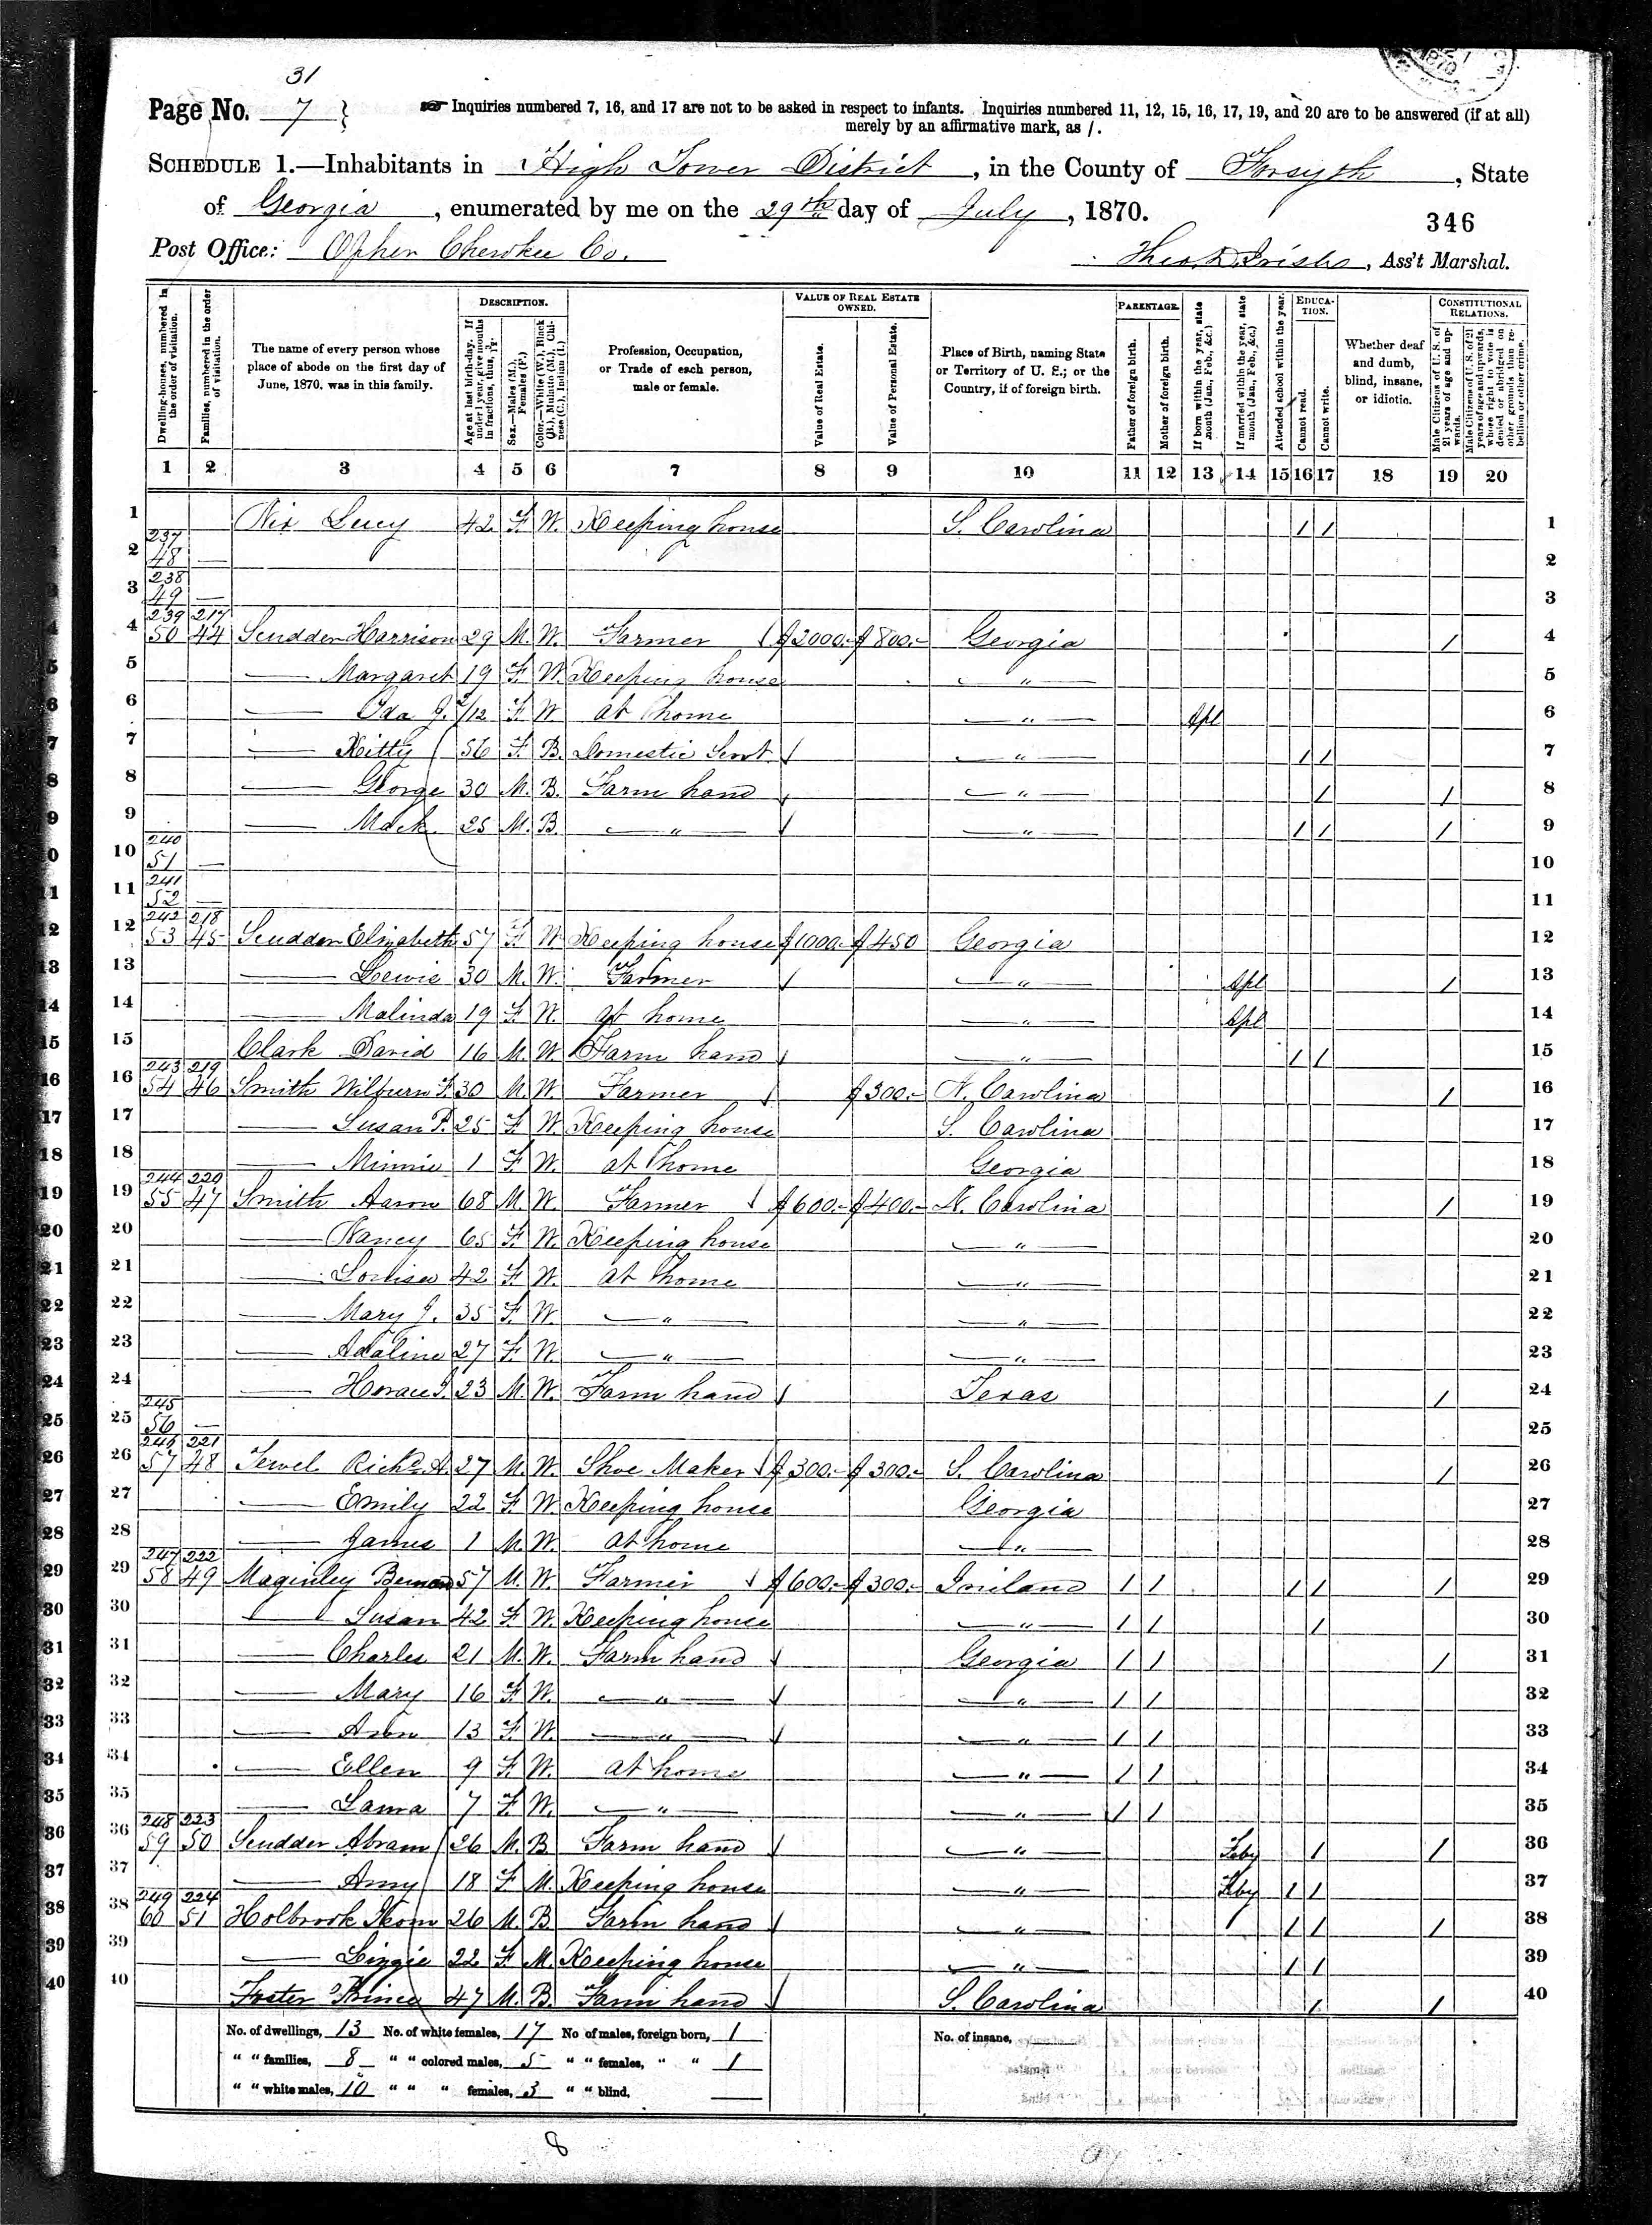 31
Page No. 7
Inquiries numbered 7, 16, and 17 are not to be asked in respect to infants. Inquiries numbered 11, 12, 15, 16, 17, 19, and 20 are to be answered (if at all)
merely by an affirmative mark, as /.
SCHEDULE 1.—Inhabitants in High Tower District, in the County of Forsyth, State
of Georgia, enumerated by me on the 29th day of July, 1870.
346
Post Office: Opher Cherokee Co.
Ass't Marshal.
Dwelling-houses, numbered in the order of visitation.
Families, numbered in the order of visitation.
The name of every person whose place of abode on the first day of June, 1870, was in this family.
DESCRIPTION.
Age at last birth-day. If under 1 year, give months in fractions, thus, 3/12.
Sex.—Males (M.), Females (F.)
Color.—White (W.), Black (B.), Mulatto (M.), Chinese (C.), Indian (I.)
Profession, Occupation, or Trade of each person, male or female.
VALUE OF REAL ESTATE OWNED.
Value of Real Estate.
Value of Personal Estate.
Place of Birth, naming State or Territory of U. S.; or the Country, if of foreign birth.
PARENTAGE.
Father of foreign birth.
Mother of foreign birth.
If born within the year, state month (Jan., Feb., &c.)
If married within the year, state month (Jan., Feb., &c.)
Attended school within the year.
EDUCATION.
Cannot read.
Cannot write.
Whether deaf and dumb, blind, insane, or idiotic.
CONSTITUTIONAL RELATIONS.
Male Citizens of U. S. of 21 years of age and upwards.
Male Citizens of U. S. of 21 years of age and upwards, whose right to vote is denied or abridged on other grounds than rebellion or other crime.
1 2 3 4 5 6 7 8 9 10 11 12 13 14 15 16 17 18 19 20
1 Nix Lucy 42 F W. Keeping house S. Carolina / / 1
2 237 48 — 2
3 238 49 — 3
4 239 50 217 44 Scudder Harrison 29 M. W. Farmer $2000.- $800.- Georgia / 4
5 — Margaret 19 F W. Keeping house — " — 5
6 — Oda J. 2/12 F W at home — " — Apl 6
7 — Kitty 56 F B. Domestic Servt — " — / / 7
8 — George 30 M. B. Farm hand — " — / / 8
9 — Mack 25 M. B. — " — — " — / / / 9
10 240 51 — 10
11 241 52 — 11
12 242 53 218 45 Scudder Elizabeth 57 F W Keeping house $1000.- $450 Georgia 12
13 — Lewis 30 M. W. Farmer — " — Apl / 13
14 — Malinda 19 F W. at home — " — Apl 14
15 Clark David 16 M. W. Farm hand — " — / / 15
16 243 54 219 46 Smith Wilburn F. 30 M. W. Farmer $300.- N. Carolina / 16
17 — Susan P. 25 F W. Keeping house S. Carolina 17
18 — Minnie 1 F W. at home Georgia 18
19 244 55 220 47 Smith Aaron 68 M. W. Farmer $600.- $400.- N. Carolina / 19
20 — Nancy 65 F. W. Keeping house — " — 20
21 — Louisa 42 F W. at home — " — 21
22 — Mary J. 35 F. W. — " — — " — 22
23 — Adaline 27 F. W. — " — — " — 23
24 — Horace J. 23 M. W. Farm hand Texas / 24
25 245 56 — 25
26 246 57 221 48 Jewel Richd A. 27 M. W. Shoe Maker $300.- $300.- S. Carolina / 26
27 — Emily 22 F W. Keeping house Georgia 27
28 — James 1 M. W. at home — " — 28
29 247 58 222 49 Maginley 57 M. W. Farmer $600.- $300.- Ireland / / / / / 29
30 — Susan 42 F W. Keeping house — " — / / / 30
31 — Charles 21 M. W. Farm hand Georgia / / / 31
32 — Mary 16 F W. — " — — " — / / 32
33 — Ann 13 F W. — " — — " — / / 33
34 — Ellen 9 F W. at home — " — / / 34
35 — 7 F. W. — " — — " — / / 35
36 248 59 223 50 Scudder Abram 26 M. B Farm hand — " — Feby / / 36
37 — Amy 18 F M. Keeping house — " — Feby / / 37
38 249 60 224 51 Holbrook Thom 26 M. B Farm hand — " — / / / 38
39 — Lizzie 22 F M. Keeping house — " — / / 39
40 Foster Prince 47 M. B. Farm hand S. Carolina / / 40
No. of dwellings, 13 No. of white females, 17 No of males, foreign born, 1 No. of insane,
" " families, 8 " " colored males, 5 " " females, " " 1
" " white males, 10 " " " females, 3 " " blind,
8